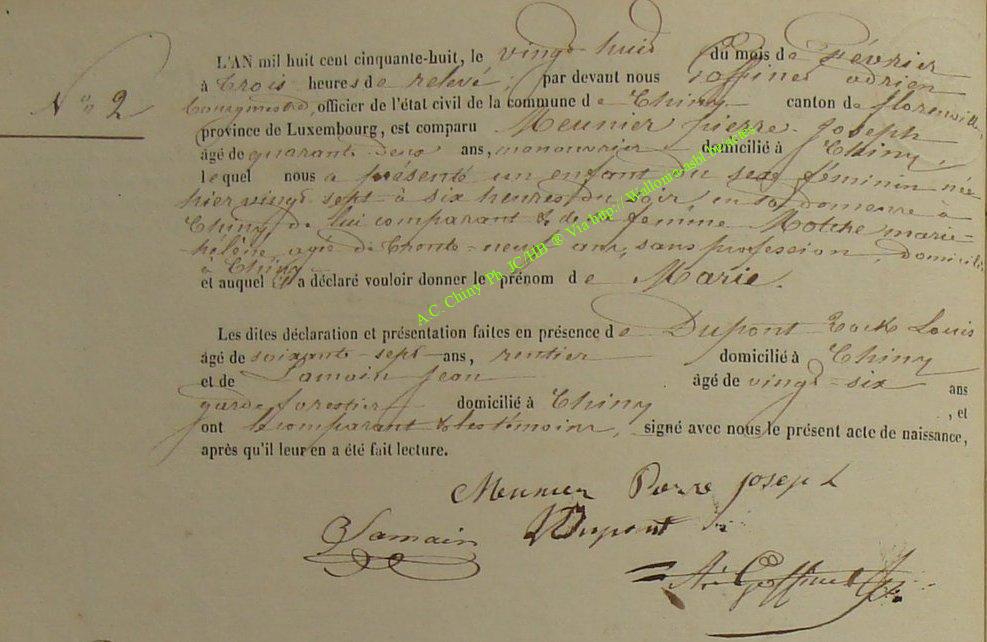 L'AN mil huit cent cinquante-huit, le vingt huit du mois de Février
à trois heures de relevé, par devant nous Goffinet adrien
N° 2
bourgmestre, officier de l'état civil de la commune de Chiny canton de florenville,
province de Luxembourg, est comparu Meunier pierre Joseph
âgé de quarante deux ans, manouvrier domicilié à Chiny,
lequel nous a présenté un enfant du sexe féminin née
hier vingt sept à six heures du soir, en sa demeure à
Chiny de lui comparant & de sa femme marie-
hélène, agée de trente-neuf ans, sans profession, domiciliée
à Chiny
et auquel il a déclaré vouloir donner le prénom de Marie.
Les dites déclaration et présentation faites en présence de Dupont Louis
âgé de soixante-sept ans, rentier domicilié à Chiny
et de Lamain Jean âgé de vingt-six ans
garde forestier domicilié à Chiny, et
ont le comparant & les témoins, signé avec nous le présent acte de naissance,
après qu'il leur en a été fait lecture.
Meunier Pierre Joseph
Lamain Dupont
Goffinet
A.C. Chiny Ph. JC/HB ® Via http://Wallonia.ashl.be/actes